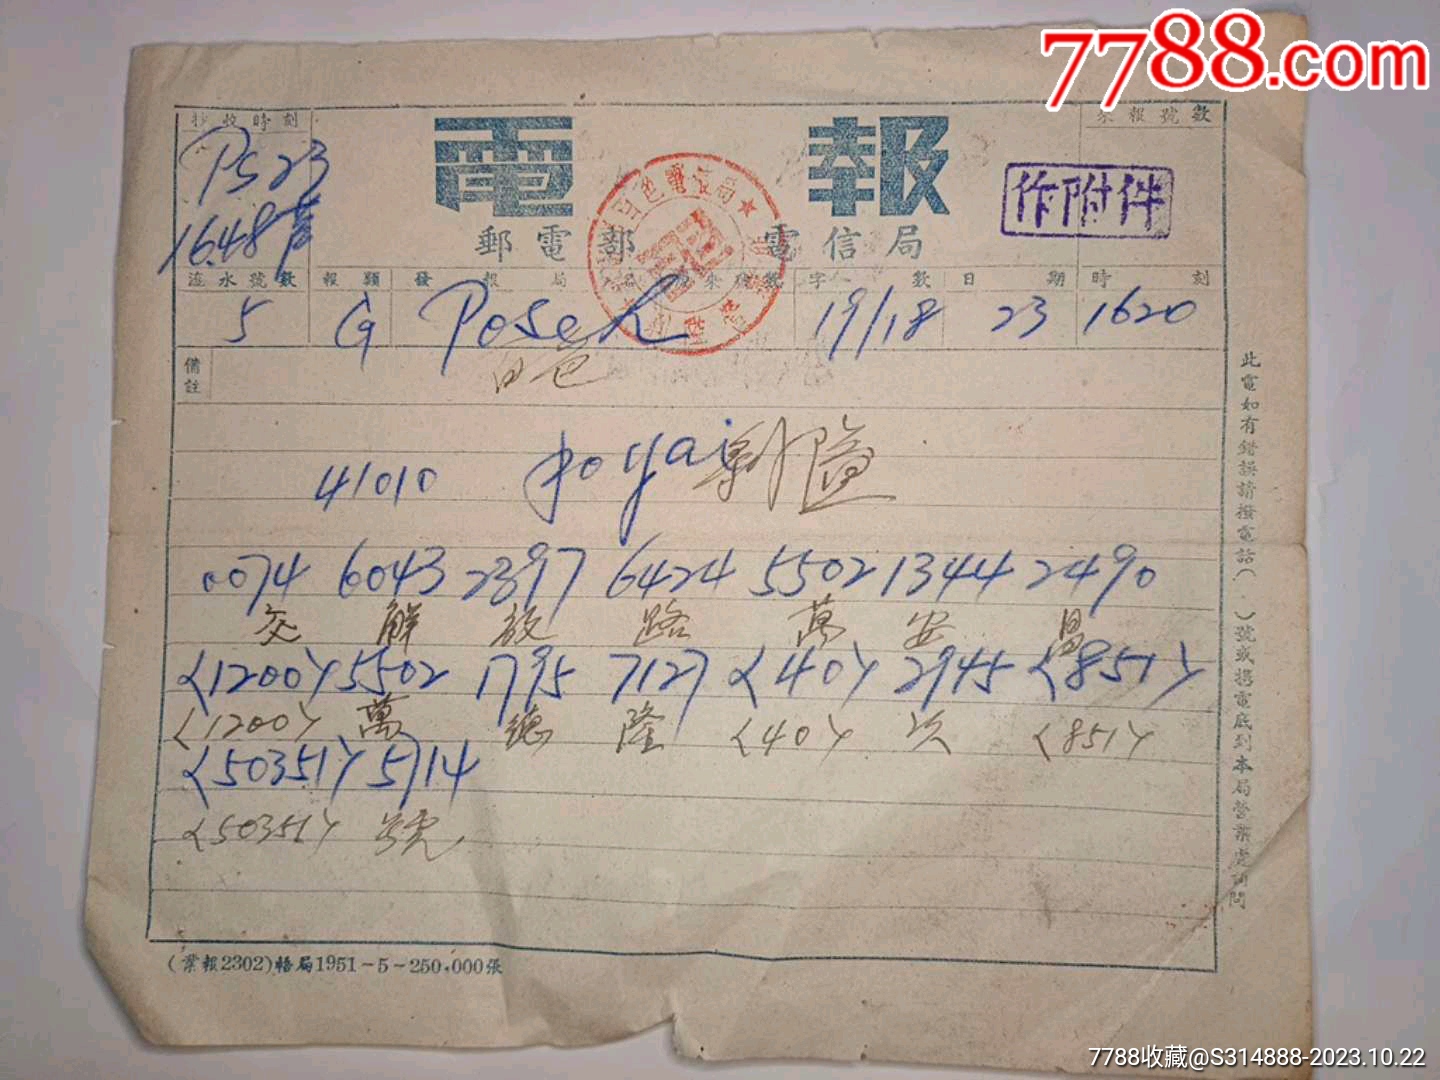 7788.com
抄收時刻
來報號數
電報
PS23
16.48
作附件
郵電部 電信局
流水號數 報類 發報局 原來號數 字數 日期 時刻
5 G Poseh 19/18 23 1620
百色
備註
41010 poyai
0074 6043 2397 6424 5502 1344 2490
交 解 放 路 萬 安 昌
<1200> 5502 1795 7127 <40> 2945 <851>
<1200> 萬 德 隆 <40> 次 <851>
<50351> 5714
<50351> 號
此電如有錯誤請撥電話( )號或携電底到本局營業處詢問
(業報2302)梧局1951-5-250,000張
7788收藏@S314888-2023.10.22